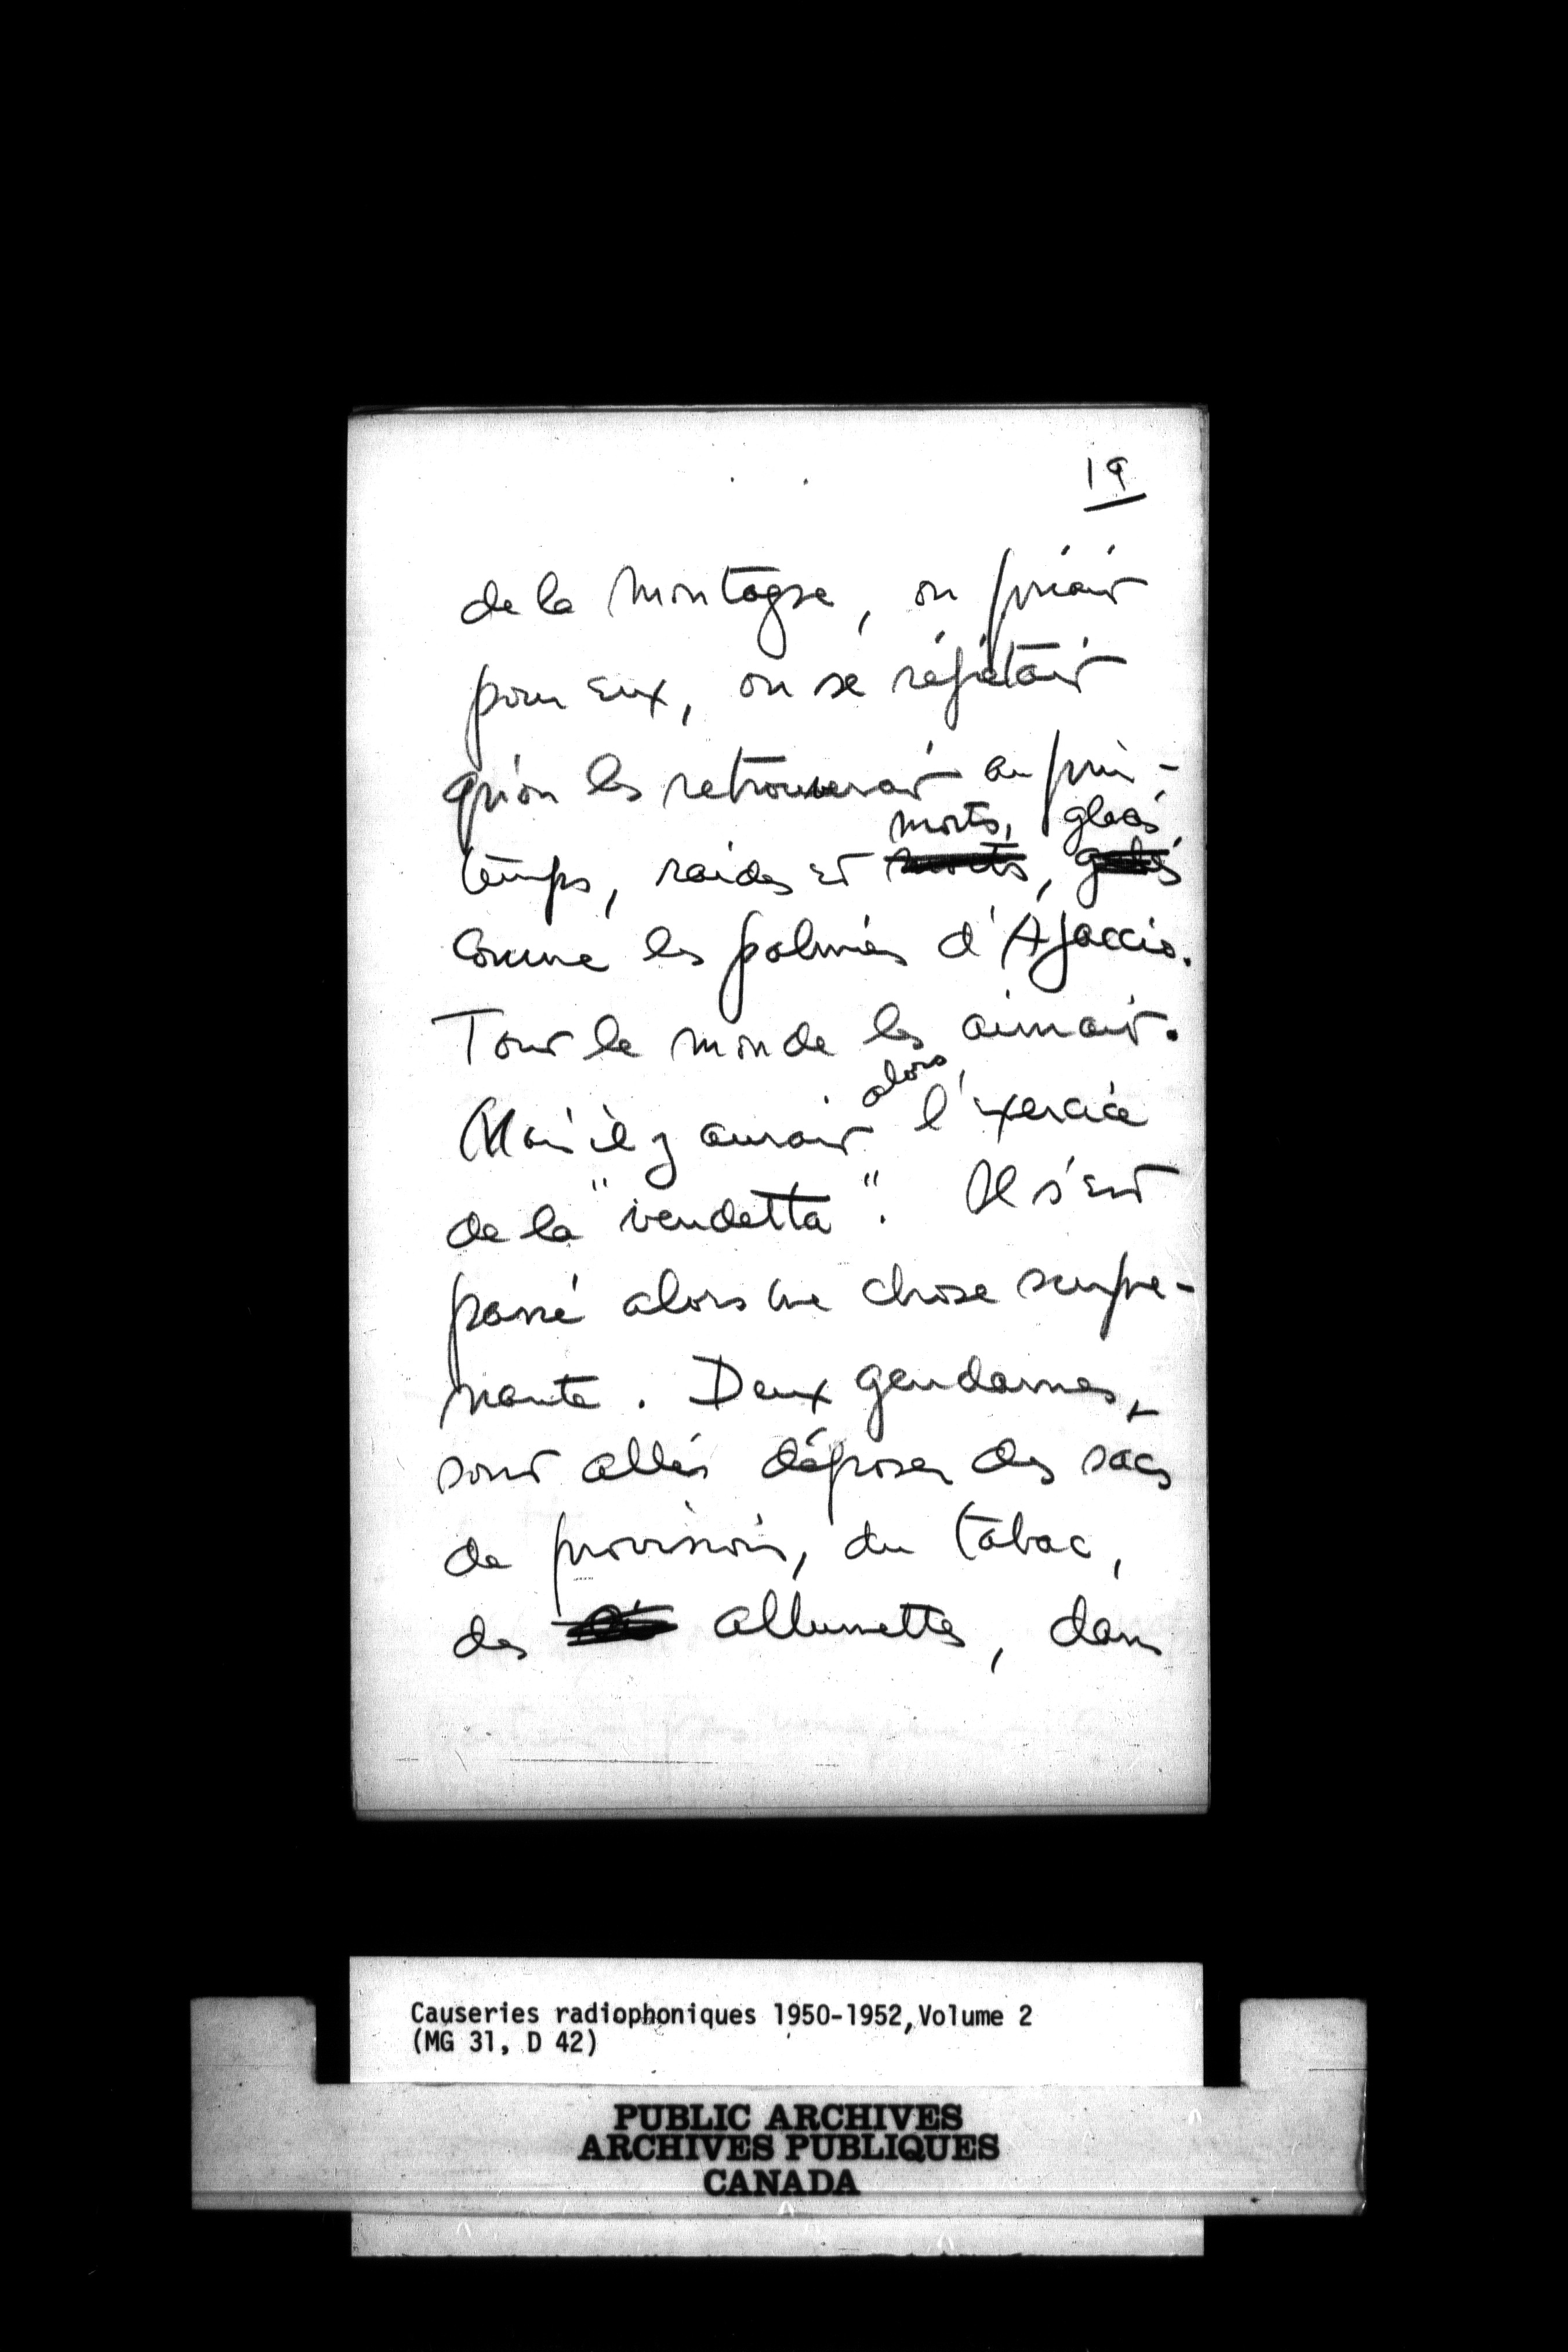 19
de la montagne, on priait
pour eux, on se répétait
qu'on les retrouverait au prin-
morts, glacés,
temps, raides et morts, gelés
comme les palmiers d'Ajaccio.
Tout le monde les aimait.
alors,
Mais il y aurait l'exercice
de la "vendetta". Il s'est
passé alors une chose surpre-
nante. Deux gendarmes,
sont allés déposer des sacs
de provisions, du tabac,
des allumettes, dans
Causeries radiophoniques 1950-1952, Volume 2
(MG 31, D 42)
PUBLIC ARCHIVES
ARCHIVES PUBLIQUES
CANADA